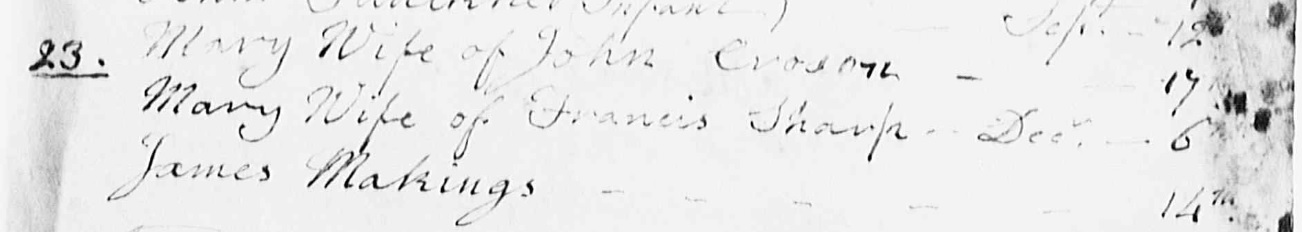 (Infant) - Sept. - 12
23. Mary Wife of John Croson - - 17
Mary Wife of Francis Sharp - - Decr. - 6
James Makings - - - - - 14th